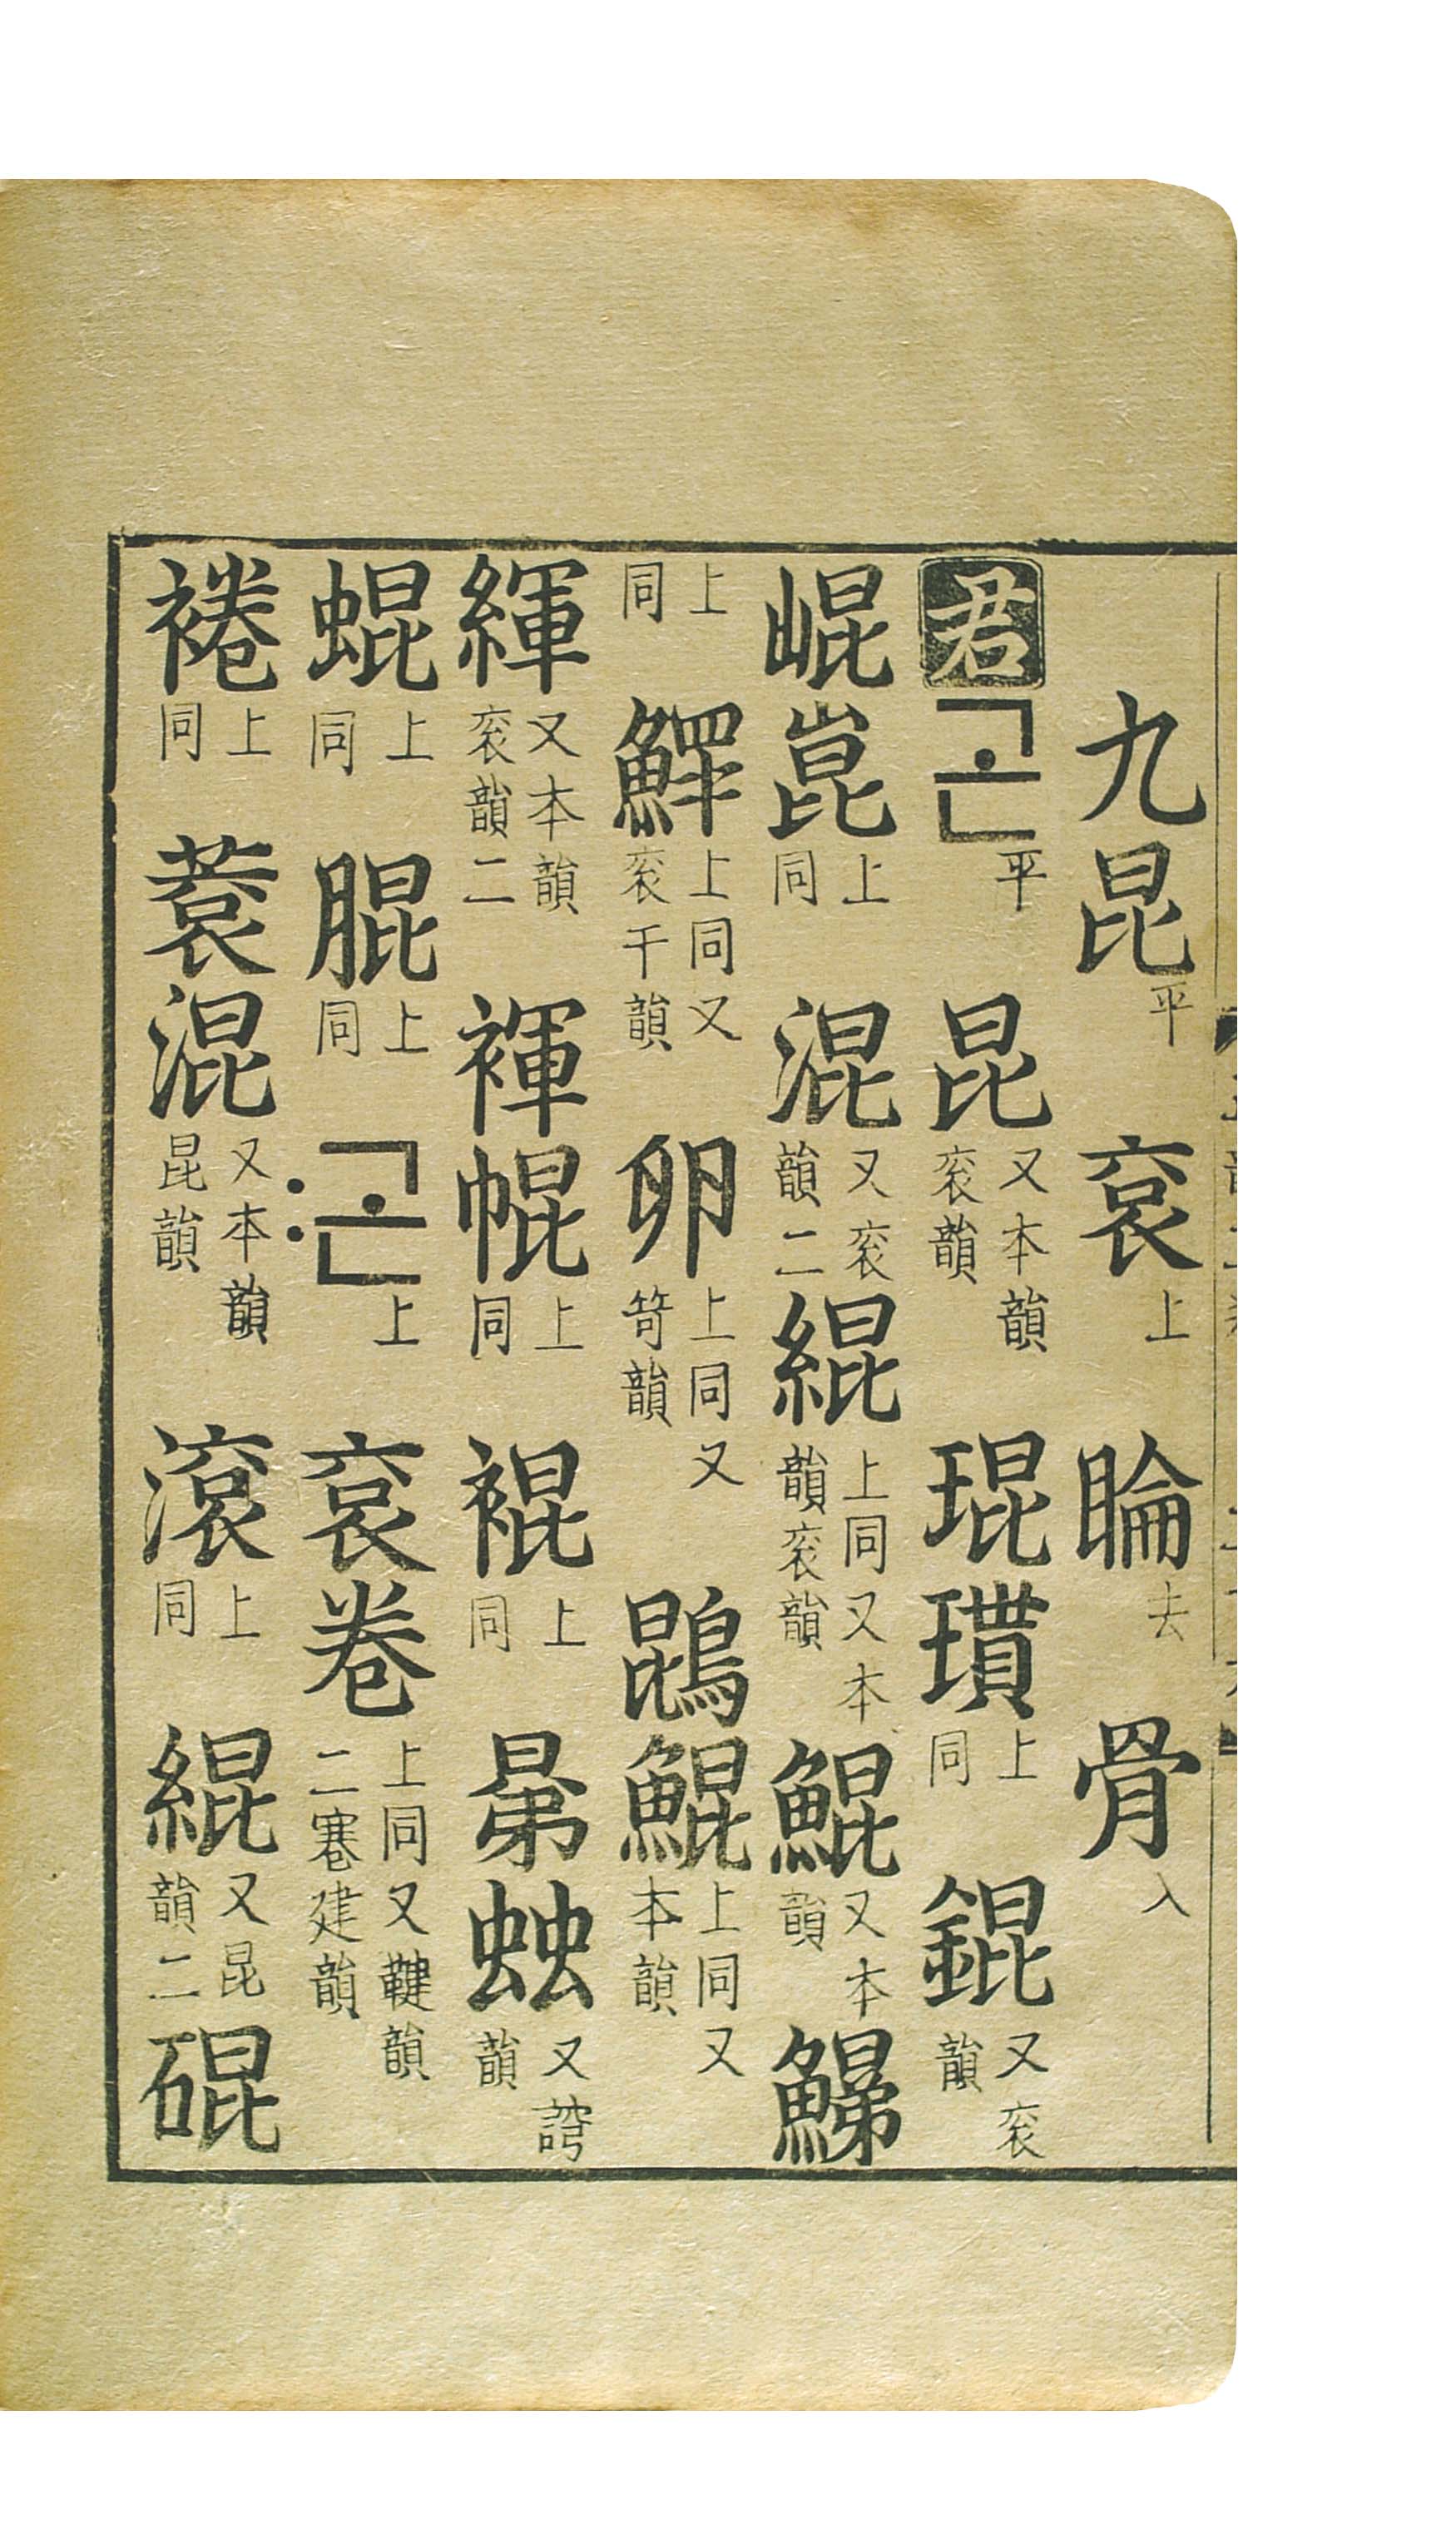 九昆平 袞上 睔去 骨入
君 곤平 昆又本韻衮韻 琨瑻上同 錕又衮韻
崐崑上同 混又衮韻二 緄上同又本韻衮韻 鯤又本韻
上同 上同又衮干韻 卵上同又笴韻 鵾鯤上同又本韻
緷又本韻衮韻二 褌㡓上同 裩上同 晜䖵又韻
蜫上同 上同 곤〯上 袞卷上同又鞬韻二寋建韻
裷上同 蓘混又本韻昆韻 滾上同 緄又昆韻二